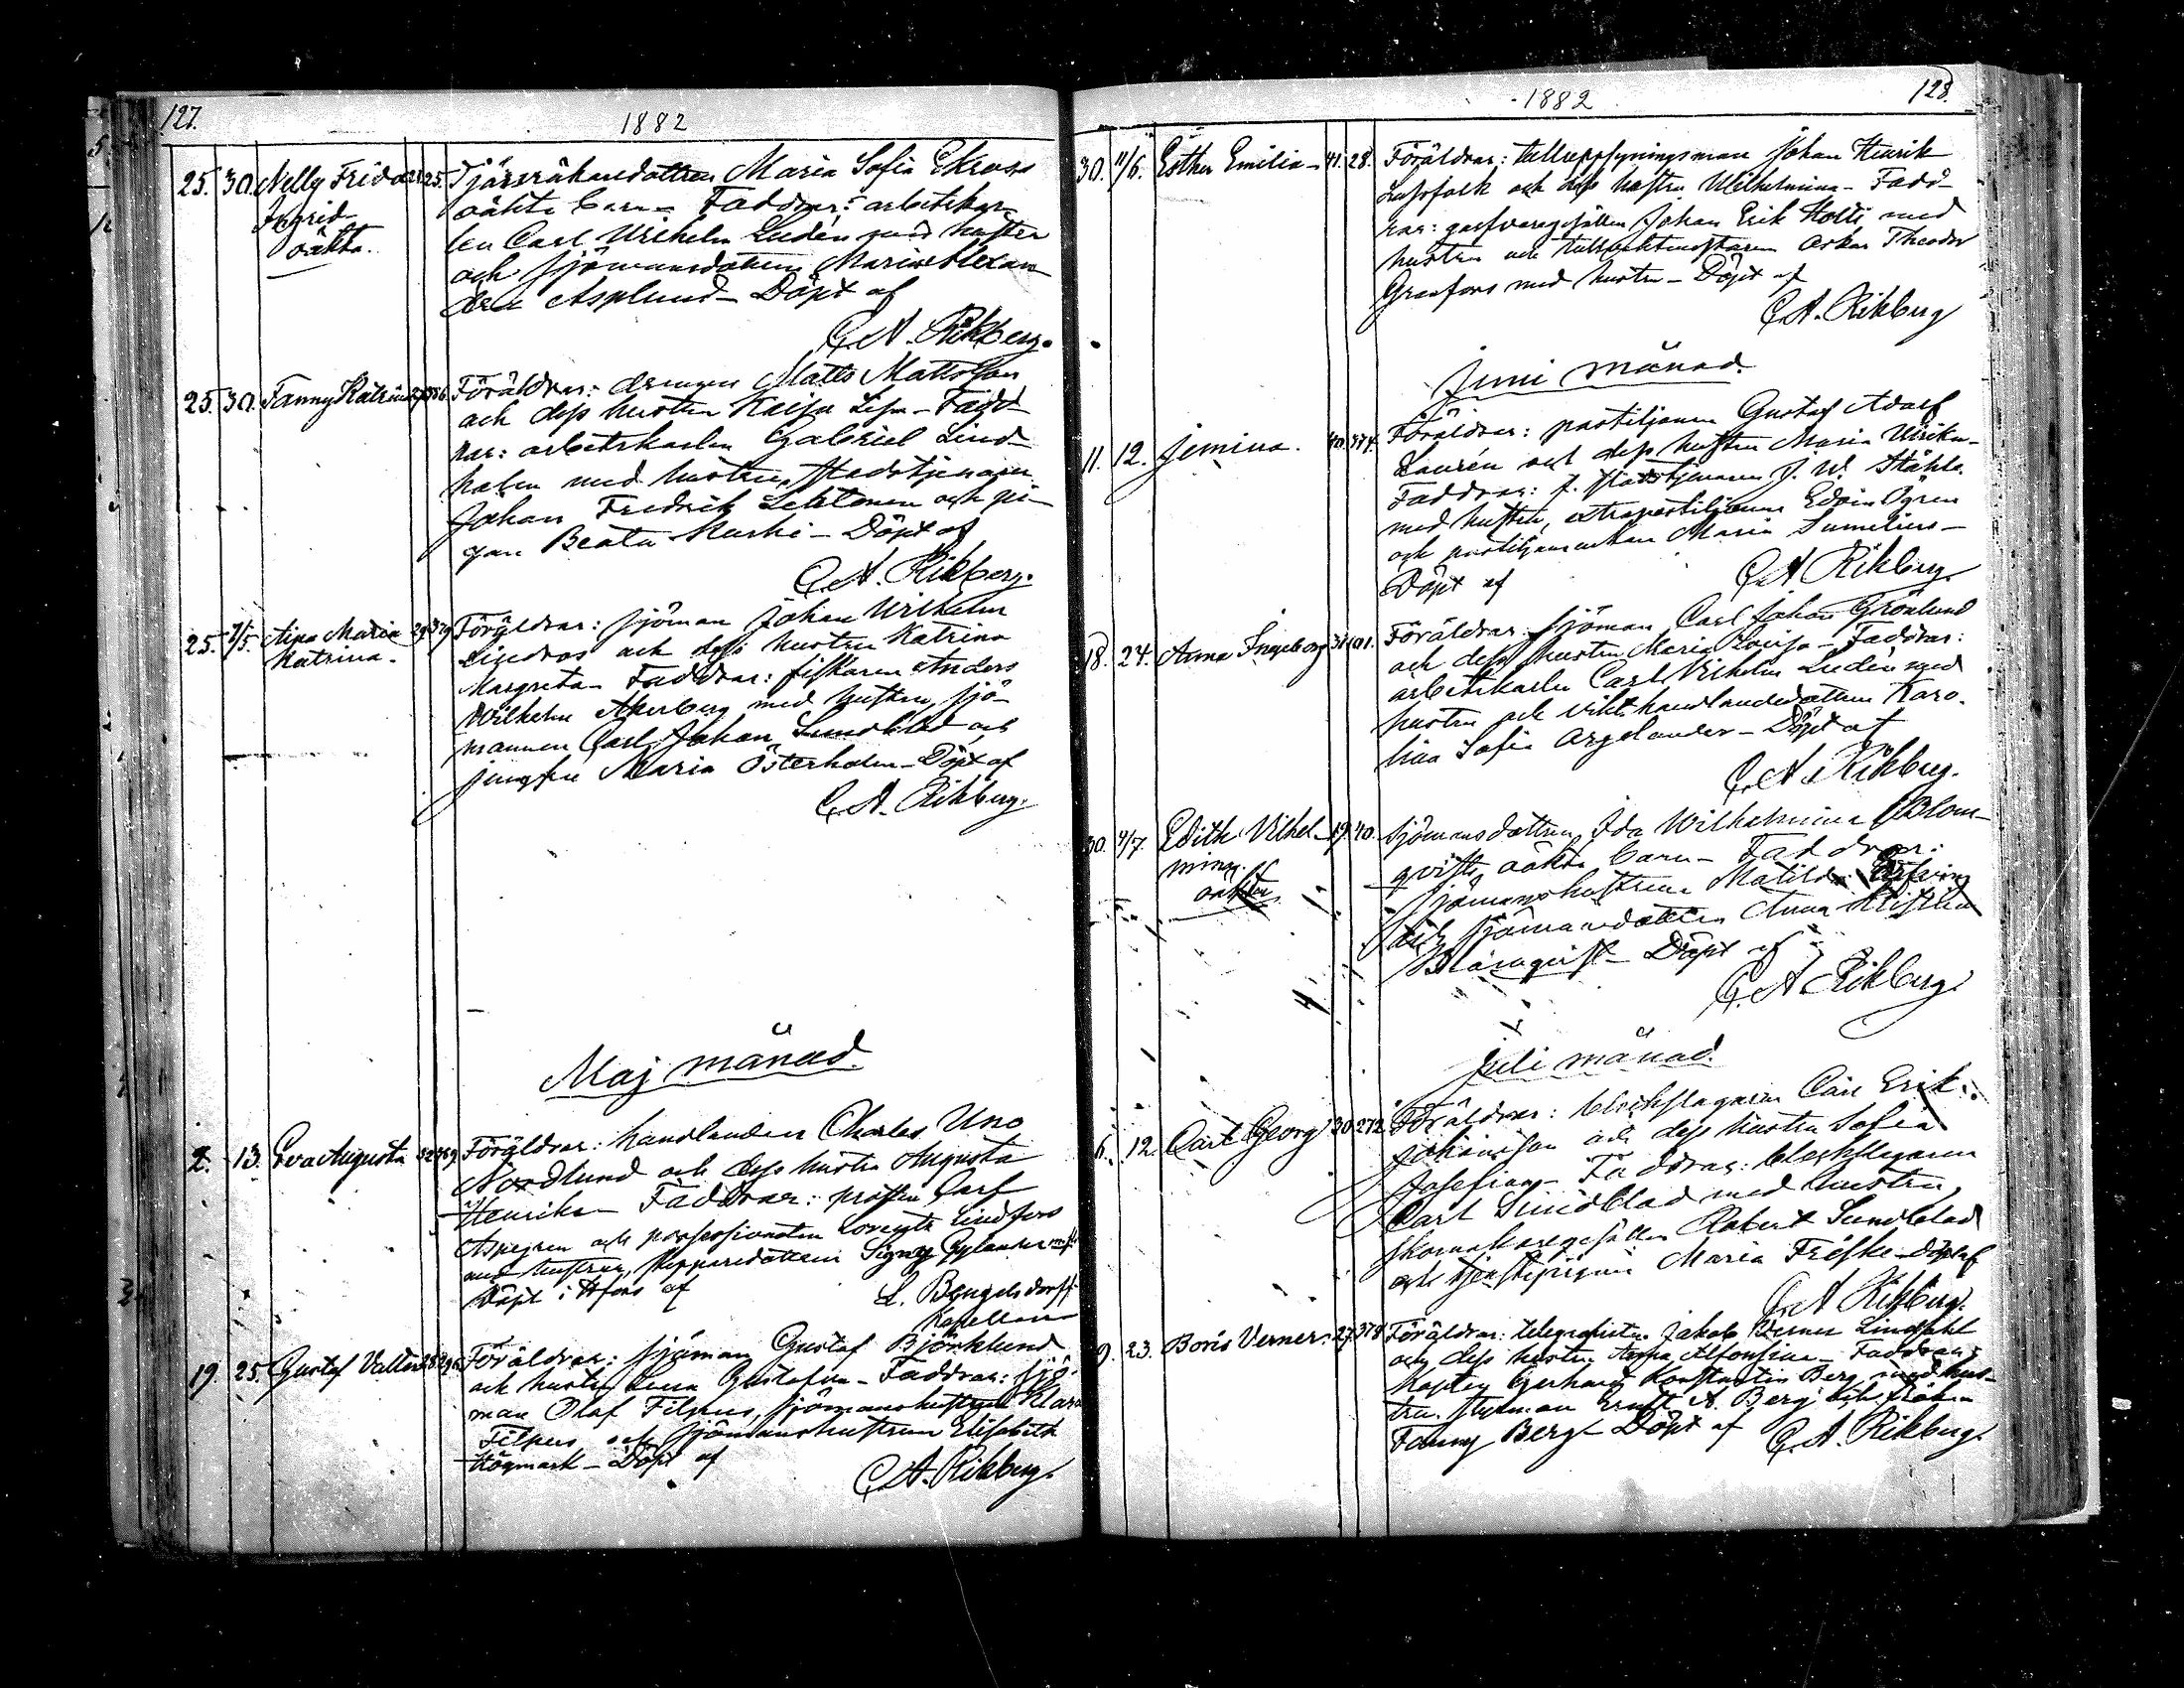 127.
1882
25. 30. Nelly Frida 25. Maria Sofia Ekroos
Ingrid oäkta barn – Faddrar: arbetskar-
oäkta. len Carl Wilhelm Ludén med hustru
och sjömansdottren Maria Alexan-
dra Asplund – Döpt af
C. A. Rikberg.
25. 30. Fanny Katrina Föräldrar: drengen Matts Mattsson
och dess hustru Kaisa Lisa – Fadd-
rar: arbetskarlen Gabriel Lind-
holm med hustru, stadstjenaren
Johan Fredrik Lehtonen och pi-
gan Beata Maski – Döpt af
C. A. Rikberg.
25. 7/5. Aina Maria 29 Föräldrar: sjöman Johan Wilhelm
Katrina. och dess hustru Katrina
Margreta – Faddrar: fiskaren Anders
Wilhelm Åkerberg med hustru, sjö-
mannen Carl Johan Sundblad och
jungfru Maria Österholm – Döpt af
C. A. Rikberg.
Maj månad.
2. 13. Eva Augusta Föräldrar: handlanden Charles Uno
Nordlund och dess hustru Augusta
Henrika – Faddrar: prosten Carl
Aspegren och Lindfors
med hustru, skepparedottren Signe
Döpt i af L. Bengelsdorff
Kapellan
19. 25. Gustaf Valter 28 Föräldrar: sjöman Gustaf Björklund
och hustru Lena Gustafva – Faddrar: sjö-
man Olof Filpus, sjömanshustrun Klara
Filpus och sjömanshustrun Elisabeth
Högmark – Döpt af
C. A. Rikberg.
1882
128.
30. 11/6. Esther Emilia – 41. 28. Föräldrar: tulluppsyningsman Johan Henrik
och dess hustru Wilhelmina – Fadd-
rar: garfvaregesällen Johan Erik Holti med
hustru och tullvaktmästaren Oskar Theodor
Granfors med hustru – Döpt af
C. A. Rikberg
Juni månad.
11. 12. Jemina. 40. 374. Föräldrar: postiljonen Gustaf Adolf
Laurén och dess hustru Maria Ulrika –
Faddrar: f. stadstjenaren J. W. Ståhle
med hustru, extrapostiljonen Edvin Ögren
och postiljonsenkan Maria Sumelius –
Döpt af C. A. Rikberg
18. 24. Anna Ingeborg 31 101. Föräldrar: sjöman Carl Johan Grönlund
och dess hustru Maria Lovisa – Faddrar:
arbetskarlen Carl Vilhelm Ludén med
hustru och handlandedottren Karo-
lina Sofia Argelander – Döpt af
C. A. Rikberg.
30. 9/7. Edith Vilhel- 19. 40. Sjömansdottren Ida Wilhelmina Blom-
mina. qvists oäkta barn – Faddrar:
oäkta sjömanshustrun Matilda
och sjömansdottren Anna Kristina
Blomqvist – Döpt af
C. A. Rikberg.
Juli månad.
6. 12. Carl Georg 30 272 Föräldrar: bleckslagaren Carl Erik
Johansson och dess hustru Sofia
Josefina – Faddrar: bleckslagaren
Carl Sundblad med hustru,
skomakaregesällen Robert Sundblad
och tjenstepigan Maria Friske – Döpt af
C. A. Rikberg.
9. 23. Boris Verner. 27 378 Föräldrar: telegrafisten Jakob Verner Lindahl
och dess hustru Anna Alfonsina – Faddrar:
kapten Gerhard Konstantin Berg med hus-
tru. styrman Ernst A. Berg och fröken
Fanny Berg – Döpt af C. A. Rikberg.